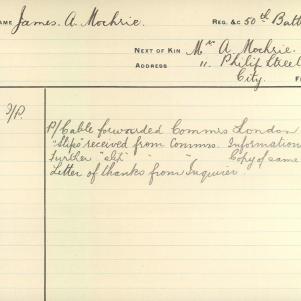 NAME James A. Mochrie. REG. &c 50th Batt
NEXT OF KIN Mrs A. Mochrie.
ADDRESS 11. Philip Street
City. F
P/Cable forwarded Commrs London
"Slips" received from Commrs. Information
Further "slip" " " Copy of same
Letter of thanks from Inquirer